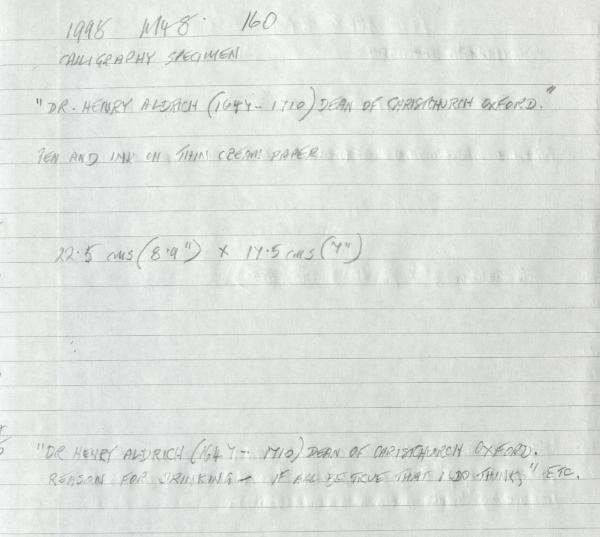 1998 M48. 160
CALLIGRAPHY SPECIMEN
"DR. HENRY ALDRICH (1647-1710) DEAN OF CHRISTCHURCH OXFORD."
PEN AND INK ON THIN CREAM PAPER.
22.5 cms (8.9") x 17.5 cms (7")
"DR HENRY ALDRICH (1647-1710) DEAN OF CHRISTCHURCH OXFORD.
REASON FOR DRINKING - IF ALL BE TRUE THAT I DO THINK," ETC.